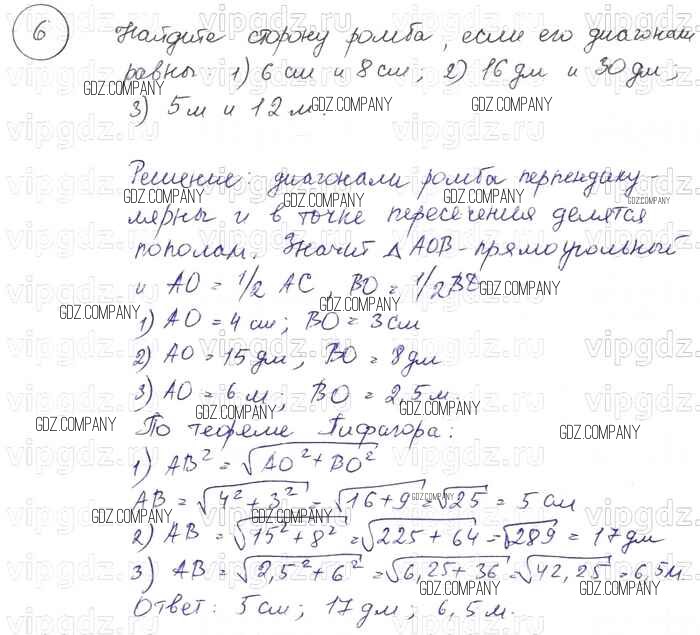 6 Найдите сторону ромба, если его диагонали
равны: 1) 6 см и 8 см; 2) 16 дм и 30 дм;
3) 5 м и 12 м.
Решение: диагонали ромба перпендику-
лярны и в точке пересечения делятся
пополам. Значит △ AOB - прямоугольный
и AO = 1/2 AC, BO = 1/2
1) AO = 4 см; BO = 3 см
2) AO = 15 дм, BO = 8 дм
3) AO = 6 м; BO = 2,5 м.
По теореме Пифагора:
1) AB² = √AO² + BO²
AB = √4² + 3² = √16 + 9 = √25 = 5 см
2) AB = √15² + 8² = √225 + 64 = √289 = 17 дм
3) AB = √2,5² + 6² = √6,25 + 36 = √42,25 = 6,5 м
Ответ: 5 см; 17 дм; 6,5 м.
vipgdz.ru
GDZ.COMPANY